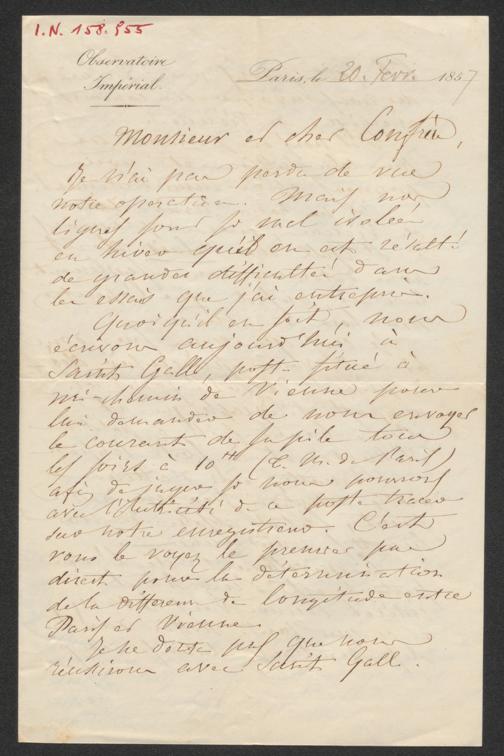 I.N. 158.955
Observatoire
Impérial.
Paris, le 20. Fevr. 1857
Monsieur et cher Confrère,
Je n'ai pas perdu de vue
notre operation. Mais nos
lignes sont si mal isolées
en hiver qu'il en est résulté
de grandes difficultés dans
les essais que j'ai entrepris.
Quoiqu'il en soit nous
écrivons aujourd'hui à
Saint Gall, poste situé à
mi-chemin de Vienne pour
lui demander de nous envoyer
le courant de sa pile tous
les soirs à 10h (T. M. de Paris)
afin de juger si nous pourrons
avec l'électricité de ce poste tracer
sur notre enregistreur. C'est
vous le voyez le premier pas
direct pour la détermination
de la différence de longitude entre
Paris et Vienne.
Je ne doute pas que nous
réussirons avec Saint Gall.